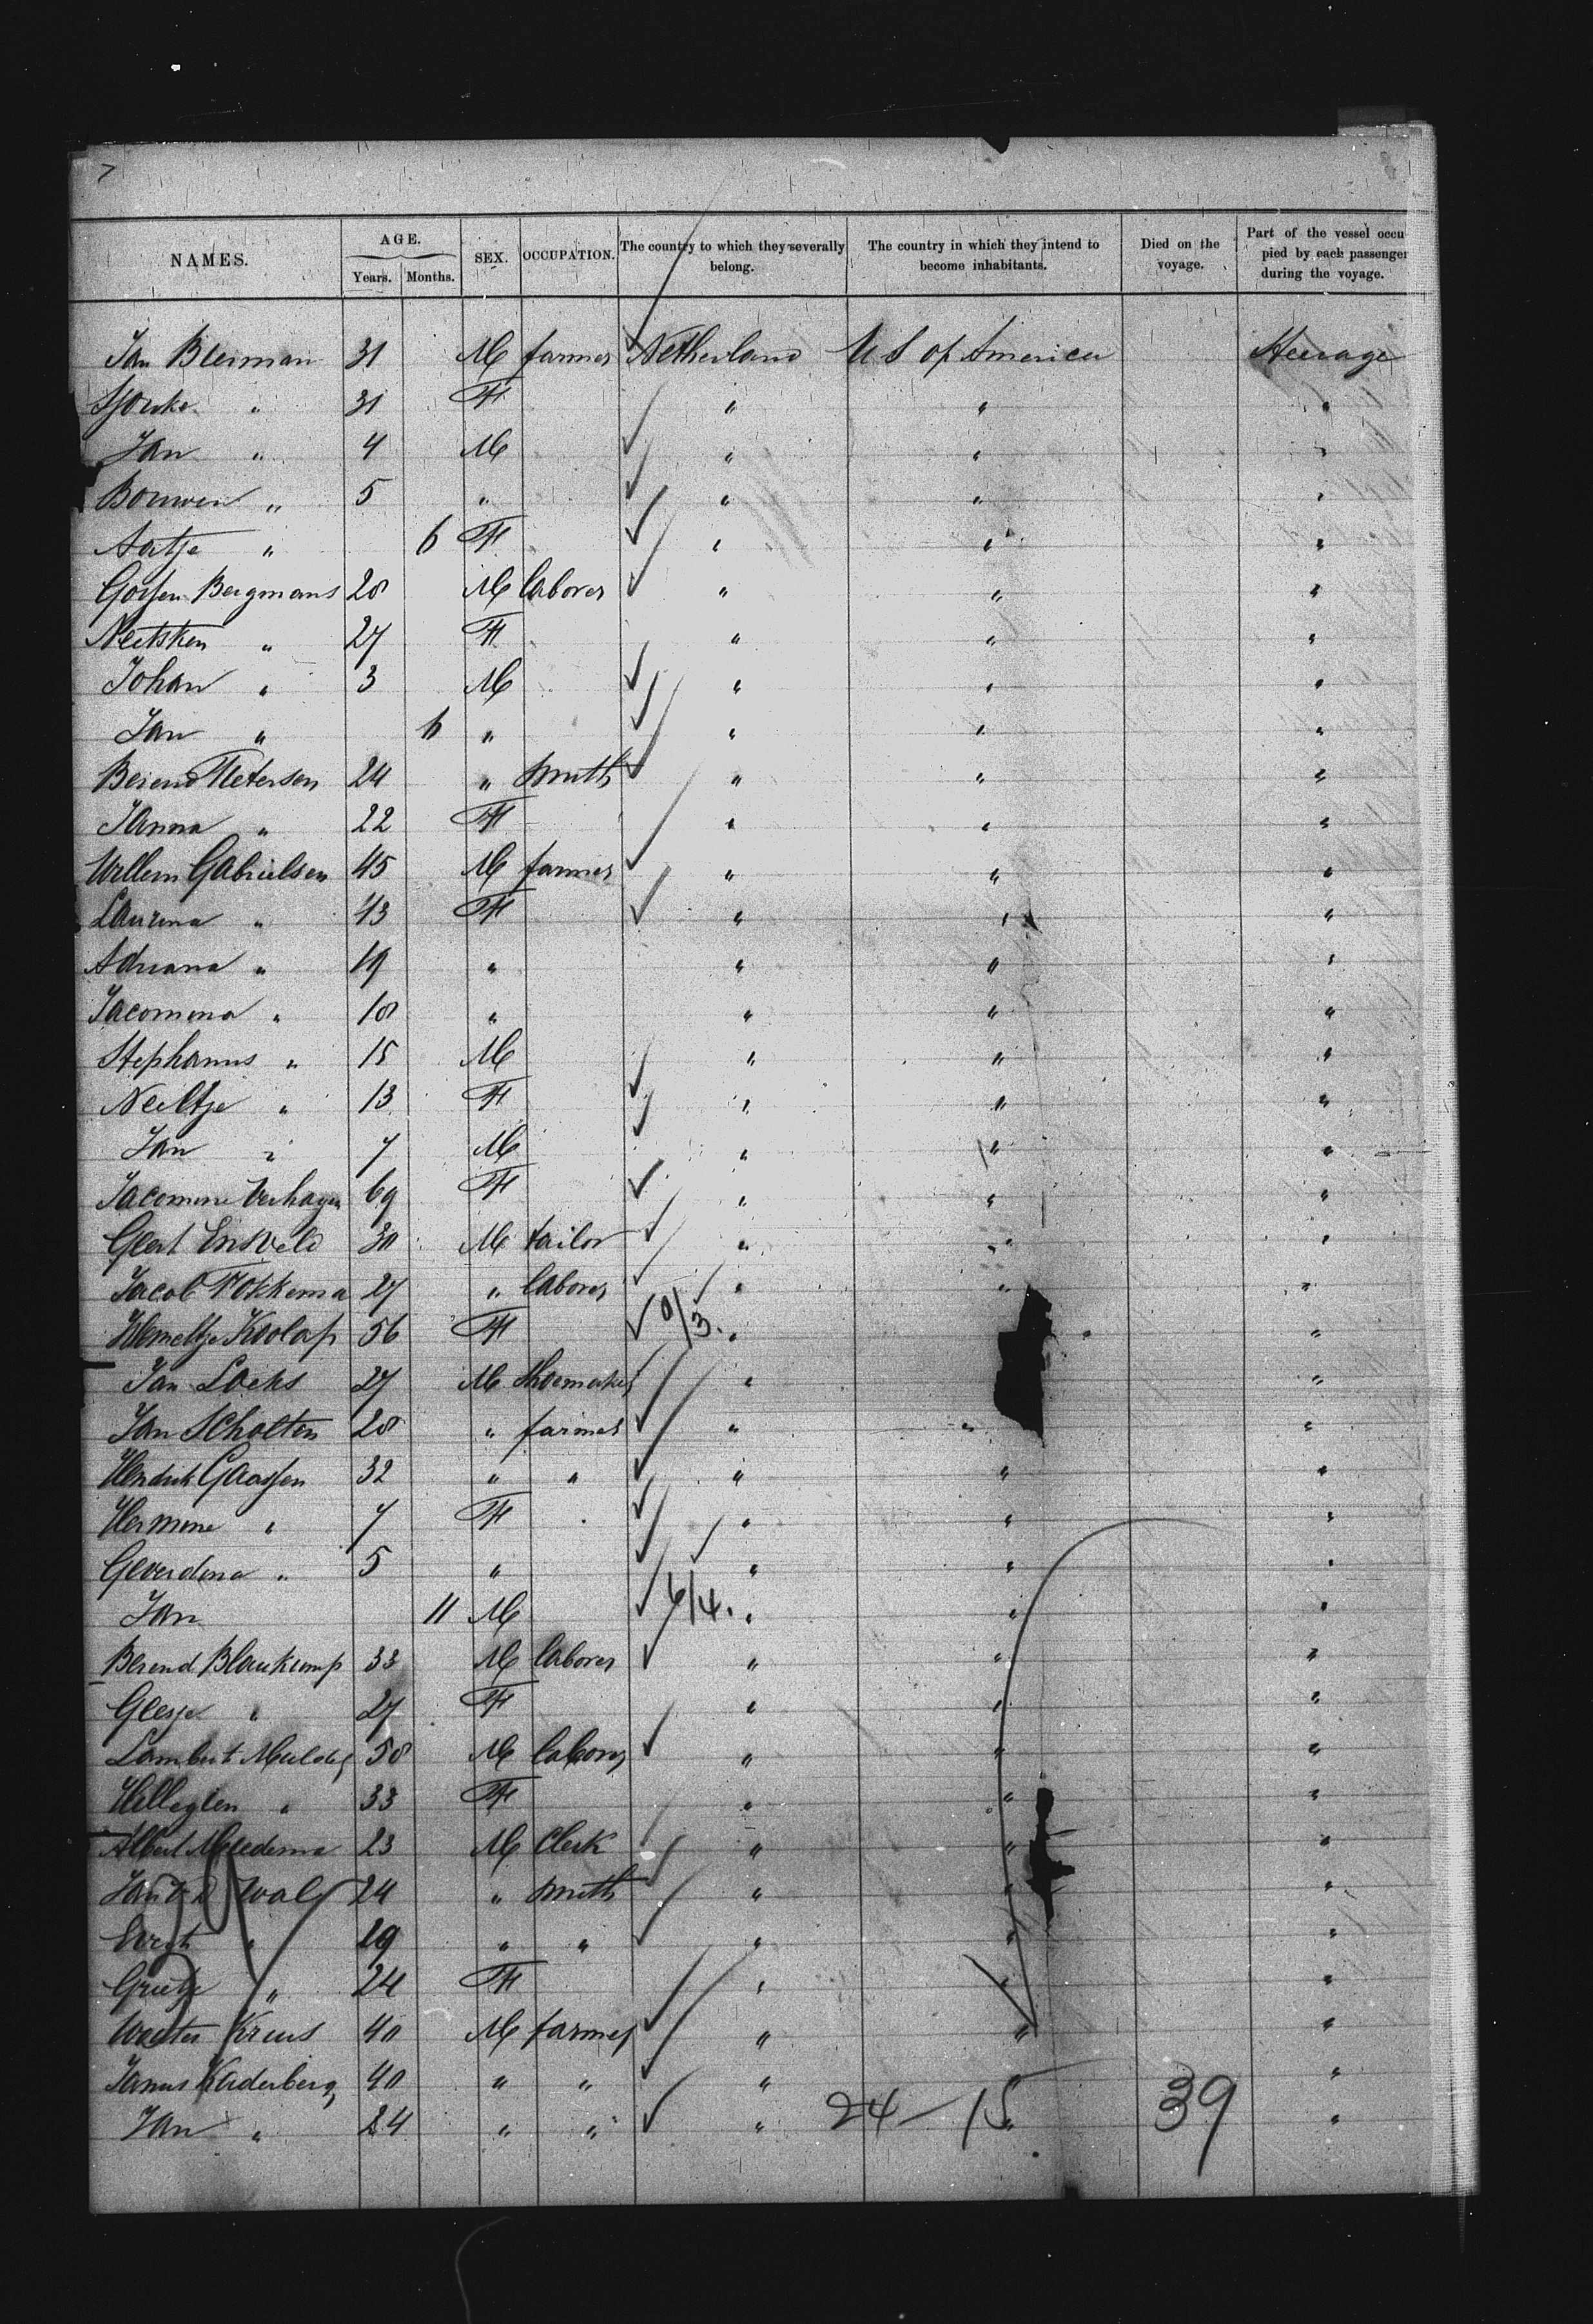 7
NAMES. AGE. Years. Months. SEX. OCCUPATION. The country to which they severally belong. The country in which they intend to become inhabitants. Died on the voyage. Part of the vessel occupied by each passenger during the voyage.
Jan Bierman 31 M farmer Netherland U S of America Steerage
Sjouke " 31 F " " "
Jan " 4 M " " "
Bouwen " 5 " " " "
Aatje " 6 F " " "
Gossen Bergmans 28 M laborer " " "
Neetsken " 27 F " " "
Johan " 3 M " " "
Jan " 6 " " " "
Berend Pietersen 24 " Smith " " "
Janna " 22 F " " "
Willem Gabrielsen 45 M farmer " " "
Laurina " 43 F " " "
Adriana " 19 " " " "
Jacomina " 18 " " " "
Stephanus " 15 M " " "
Neeltje " 13 F " " "
Jan " 7 M " " "
Jacomine Verhagen 69 F " " "
Geert Ensveld 30 M tailor " " "
Jacob Fokkema 27 " laborer " " "
Koolap 56 F 0/3. " " "
Jan Loeks 27 M Shoemaker " "
Jan Scholten 28 " farmer " " "
Hendrik Gaassen 32 " " " " "
Hermine " 7 F " " "
Geverdina " 5 " " " "
Jan 11 M 6/4. " " "
Berend Blaukamp 33 M laborer " " "
Giesje " 27 F " " "
Lambert Mulder 58 M laborer " " "
Hilligien " 33 F " " "
Albert Miedema 23 M Clerk " " "
Jan v d Wal 24 " Smith " " "
Evert " 29 " " " " "
Grietje " 24 F " " "
Wouter Kreus 40 M farmer " " "
Janus Kaderberg 40 " " " "
Jan " 24 " " " " "
24 - 15 39